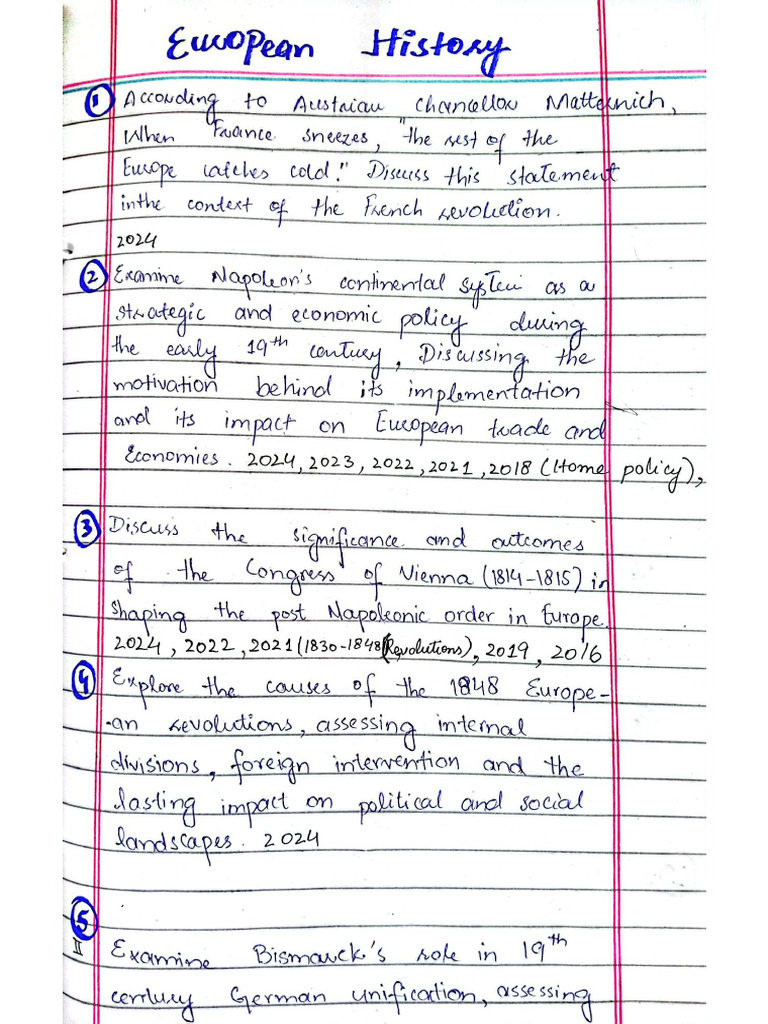 European History
① According to Austrian Chancellor Matternich,
When France sneezes, "the rest of the
Europe catches cold." Discuss this statement
inthe context of the French revolution.
2024
② Examine Napoleon's continental system as a
strategic and economic policy during
the early 19th century, Discussing the
motivation behind its implementation
and its impact on European trade and
Economies. 2024, 2023, 2022, 2021, 2018 (Home policy),
③ Discuss the significance and outcomes
of the Congress of Vienna (1814-1815) in
Shaping the post Napoleonic order in Europe.
2024, 2022, 2021 (1830-1848 (Revolutions), 2019, 2016
④ Explore the causes of the 1848 Europe-
an revolutions, assessing internal
divisions, foreign intervention and the
lasting impact on political and social
landscapes. 2024
⑤
II Examine Bismarck's role in 19th
century German unification, assessing